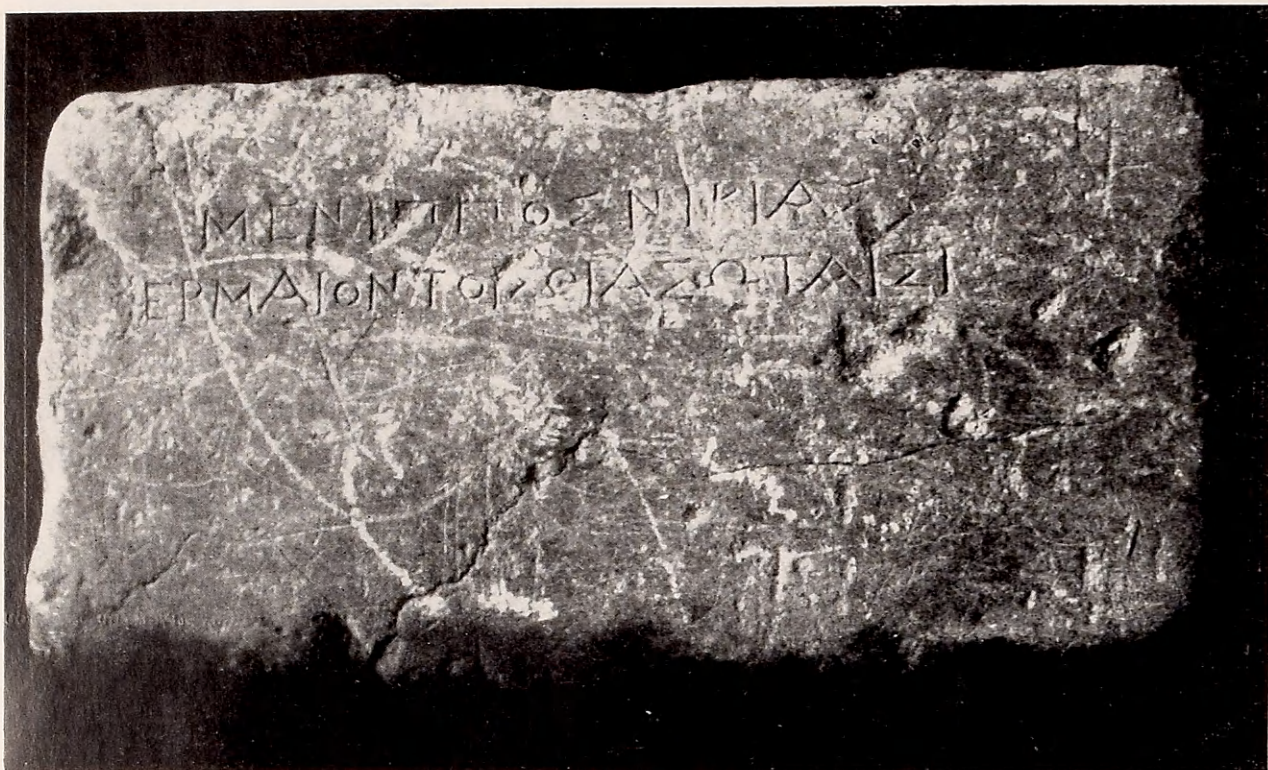 ΜΕΝΙΠΠΟΣ ΝΙΚΙΑΣ
ΕΡΜΑΙΟΝ ΤΟΙΣ ΘΙΑΣΩΤΑΙΣΙ